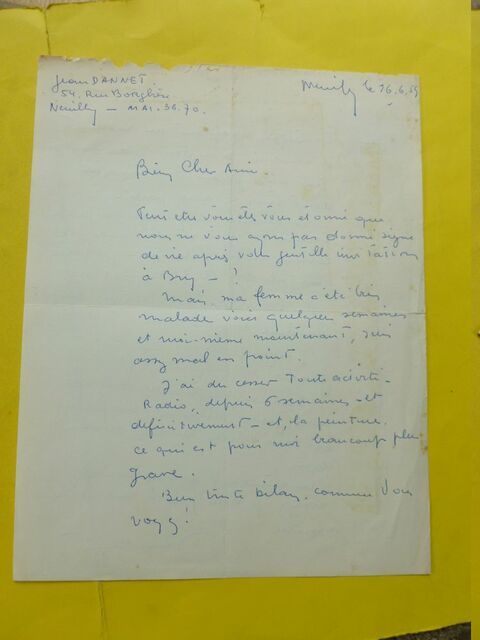 Jean DANNET
54. Rue Borghèse
Neuilly — MAI. 36.70.
Neuilly le 16.6.59
Bien Cher Ami.
Peut etre vous êtes vous étonné que
nous ne vous ayons pas donné signe
de vie après votre gentille invitation
à Bry — !
Mais ma femme a été bien
malade voici quelques semaines
et moi-même maintenant, suis
assez mal en point.
J'ai du cesser Toute activité
Radio, depuis 6 semaines — et
définitivement — et, la peinture.
ce qui est pour moi beaucoup plus
grave.
Bien triste bilan, comme Vous
voyez !